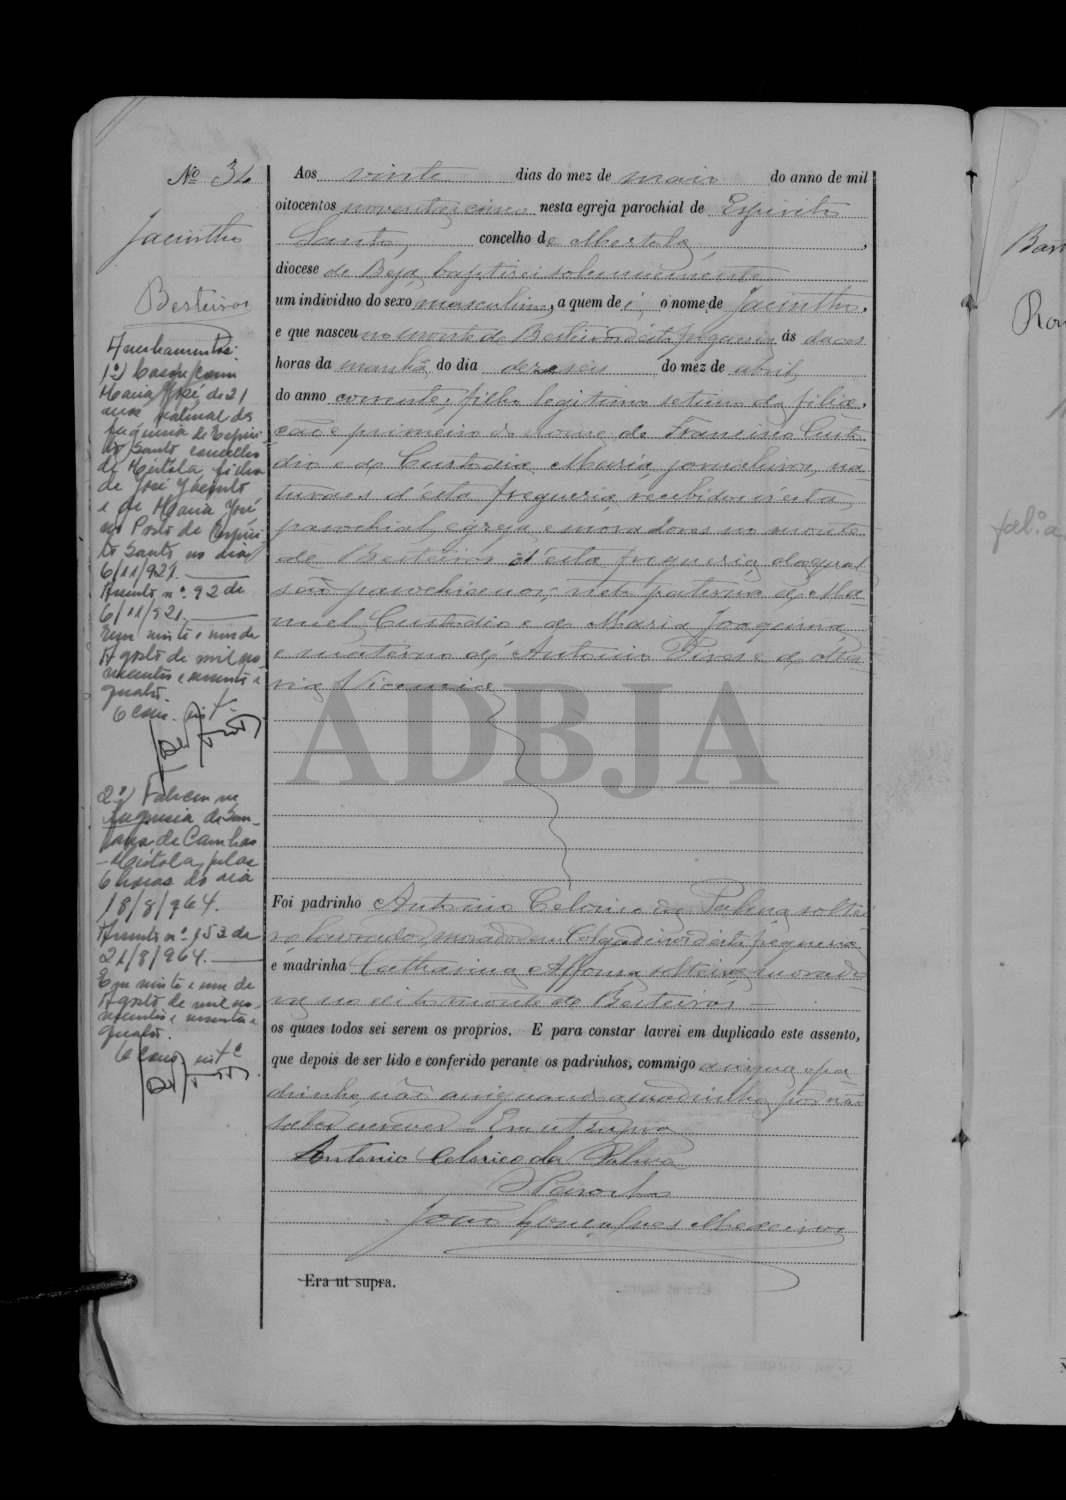 Nº 34
Jacintho
Besteiros
Aos vinte dias do mez de maio do anno de mil
oitocentos noventa e cinco nesta egreja parochial de Espirito
Santo, concelho de Mertola,
diocese de Beja, baptisei solemnemente
um individuo do sexo masculino, a quem dei o nome de Jacintho,
e que nasceu no monte de Besteiros d'esta freguezia ás doces
horas da manhã do dia dezeseis do mez de abril
do anno corrente, filho legitimo setimo da filia-
ção e primeiro do nome, de Francisco Custo-
dio e de Custodia Maria, jornaleiros, na-
turaes d'esta freguezia, recebidos n'esta
parochial egreja e moradores no monte
de Besteiros d'esta freguezia da qual
são parochianos, neto paterno de Ma-
nuel Custodio e de Maria Joaquina
e materno de Antonio Pires e de Ma-
ria Vicencia
Foi padrinho Antonio Celorico da Palma soltei-
ro lavrador, morador em d'esta freguezia
e madrinha Catharina Affonsa solteira, morado-
ra no dito monte de Besteiros
os quaes todos sei serem os proprios. E para constar lavrei em duplicado este assento,
que depois de ser lido e conferido perante os padrinhos, commigo assigna o pa-
drinho, não assignando a madrinha por não
saber escrever. Era ut supra
Antonio Celorico da Palma
O Parocho
João Gonçalves Medeiros
Era ut supra.
Averbamentos:
1º) Casou com
Maria José de 21
anos natural da
freguesia de Espiri-
to Santo concelho
de Mértola, filha
de José Jacinto
e de Maria José
no Posto de Espiri-
to Santo no dia
6/11/921.
Assento nº 92 de
6/11/921.
Em vinte e um de
Agosto de mil no-
vecentos e sessenta e
quatro.
2º) Faleceu na
freguesia de San-
tana de Cambas
-Mértola, pelas
6 horas do dia
18/8/964.
Assento nº 153 de
21/8/964.
Em vinte e um de
Agosto de mil no-
vecentos e sessenta e
quatro.
ADBJA